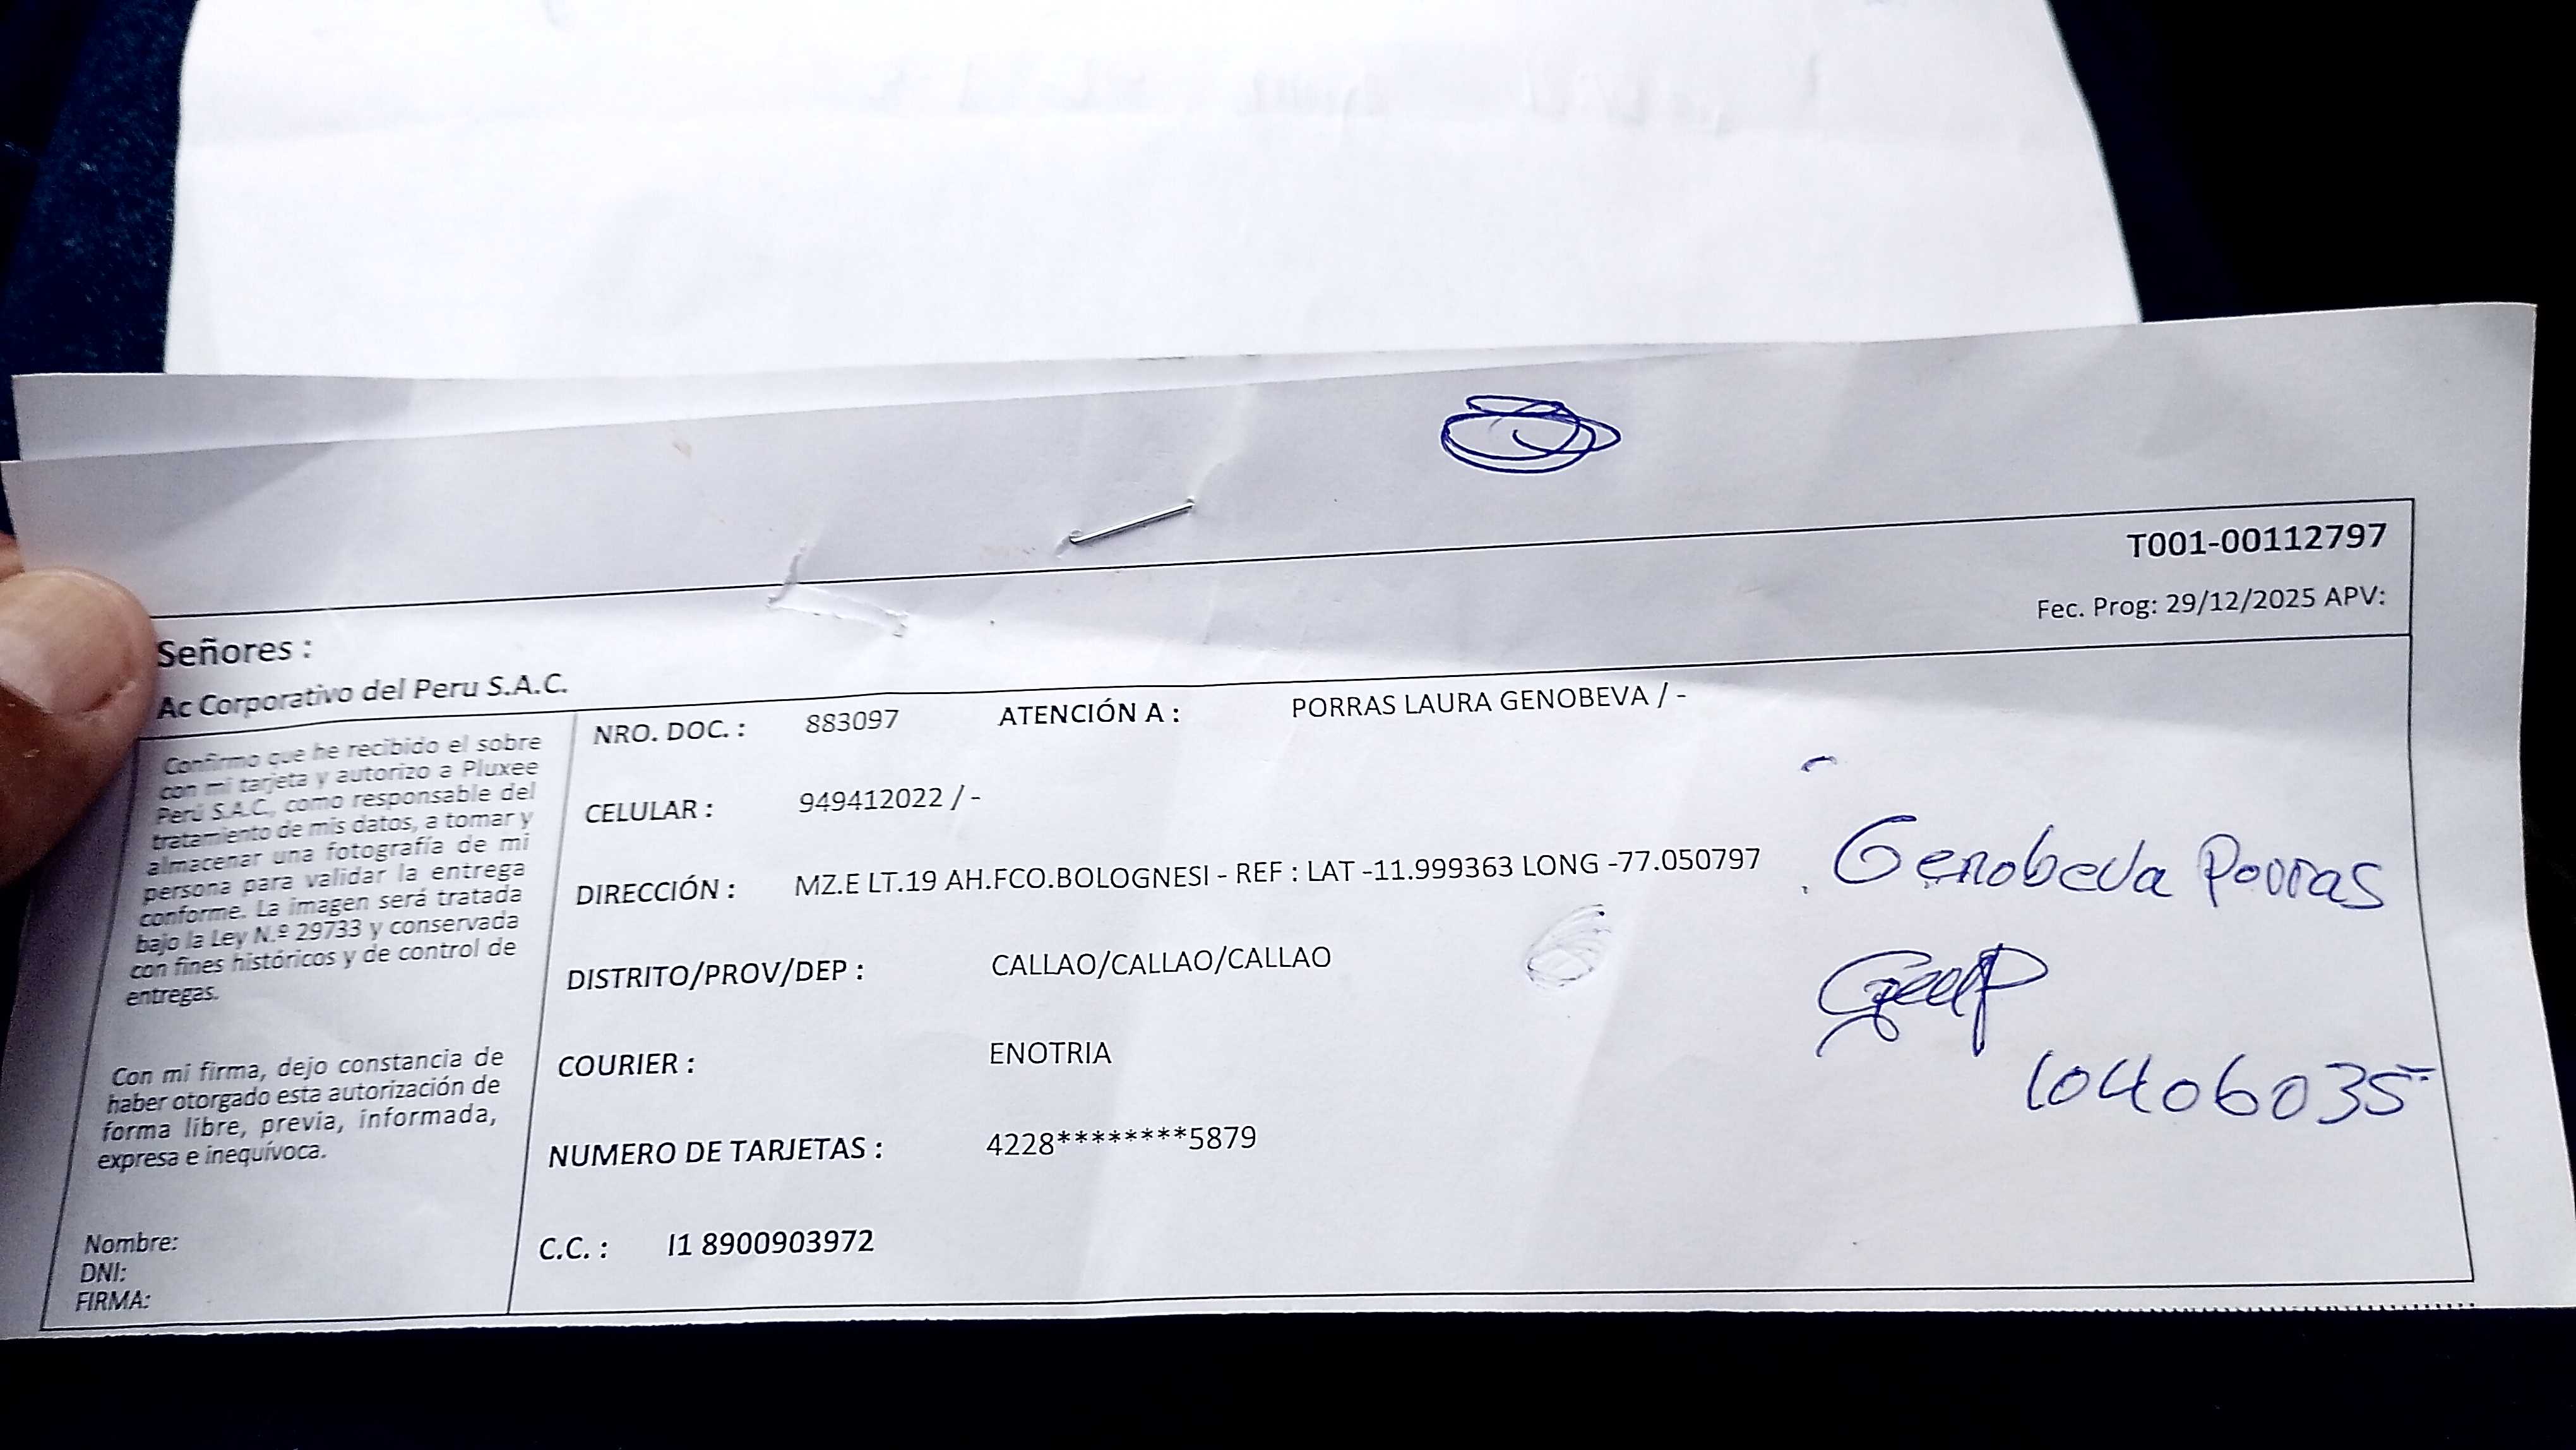 T001-00112797
Fec. Prog: 29/12/2025 APV:
Señores :
Ac Corporativo del Peru S.A.C.
Confirmo que he recibido el sobre
con mi tarjeta y autorizo a Pluxee
Perú S.A.C., como responsable del
tratamiento de mis datos, a tomar y
almacenar una fotografía de mi
persona para validar la entrega
conforme. La imagen será tratada
bajo la Ley N.º 29733 y conservada
con fines históricos y de control de
entregas.
Con mi firma, dejo constancia de
haber otorgado esta autorización de
forma libre, previa, informada,
expresa e inequívoca.
Nombre:
DNI:
FIRMA:
NRO. DOC. : 883097 ATENCIÓN A : PORRAS LAURA GENOBEVA / -
CELULAR : 949412022 / -
DIRECCIÓN : MZ.E LT.19 AH.FCO.BOLOGNESI - REF : LAT -11.999363 LONG -77.050797
DISTRITO/PROV/DEP : CALLAO/CALLAO/CALLAO
COURIER : ENOTRIA
NUMERO DE TARJETAS : 4228********5879
C.C. : I1 8900903972
Genobeva Porras
10406035